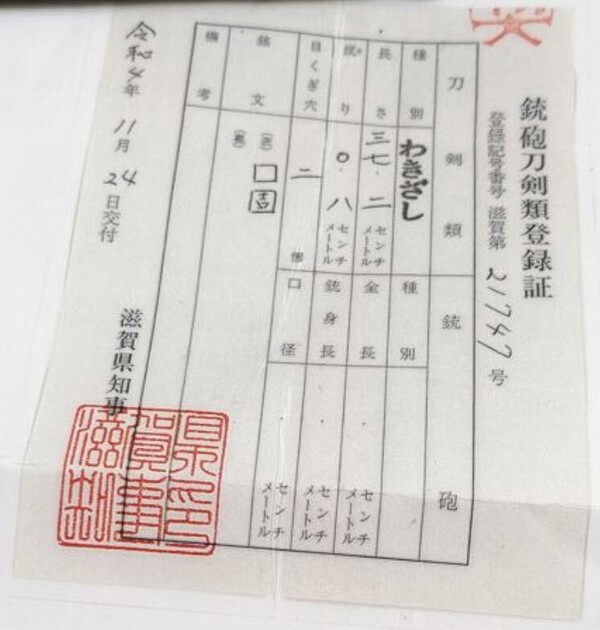 銃砲刀剣類登録証
登録記号番号 滋賀第 21747 号
刀剣類
銃砲
種別 わきざし
長さ 三七・二 センチメートル
反り 〇・八 センチメートル
目くぎ穴 二 個
銘文 (表) □吉
(裏)
備考
種別
全長 センチメートル
銃身長 センチメートル
口径 センチメートル
令和4年 11月 24日交付
滋賀県知事
滋賀県知事印